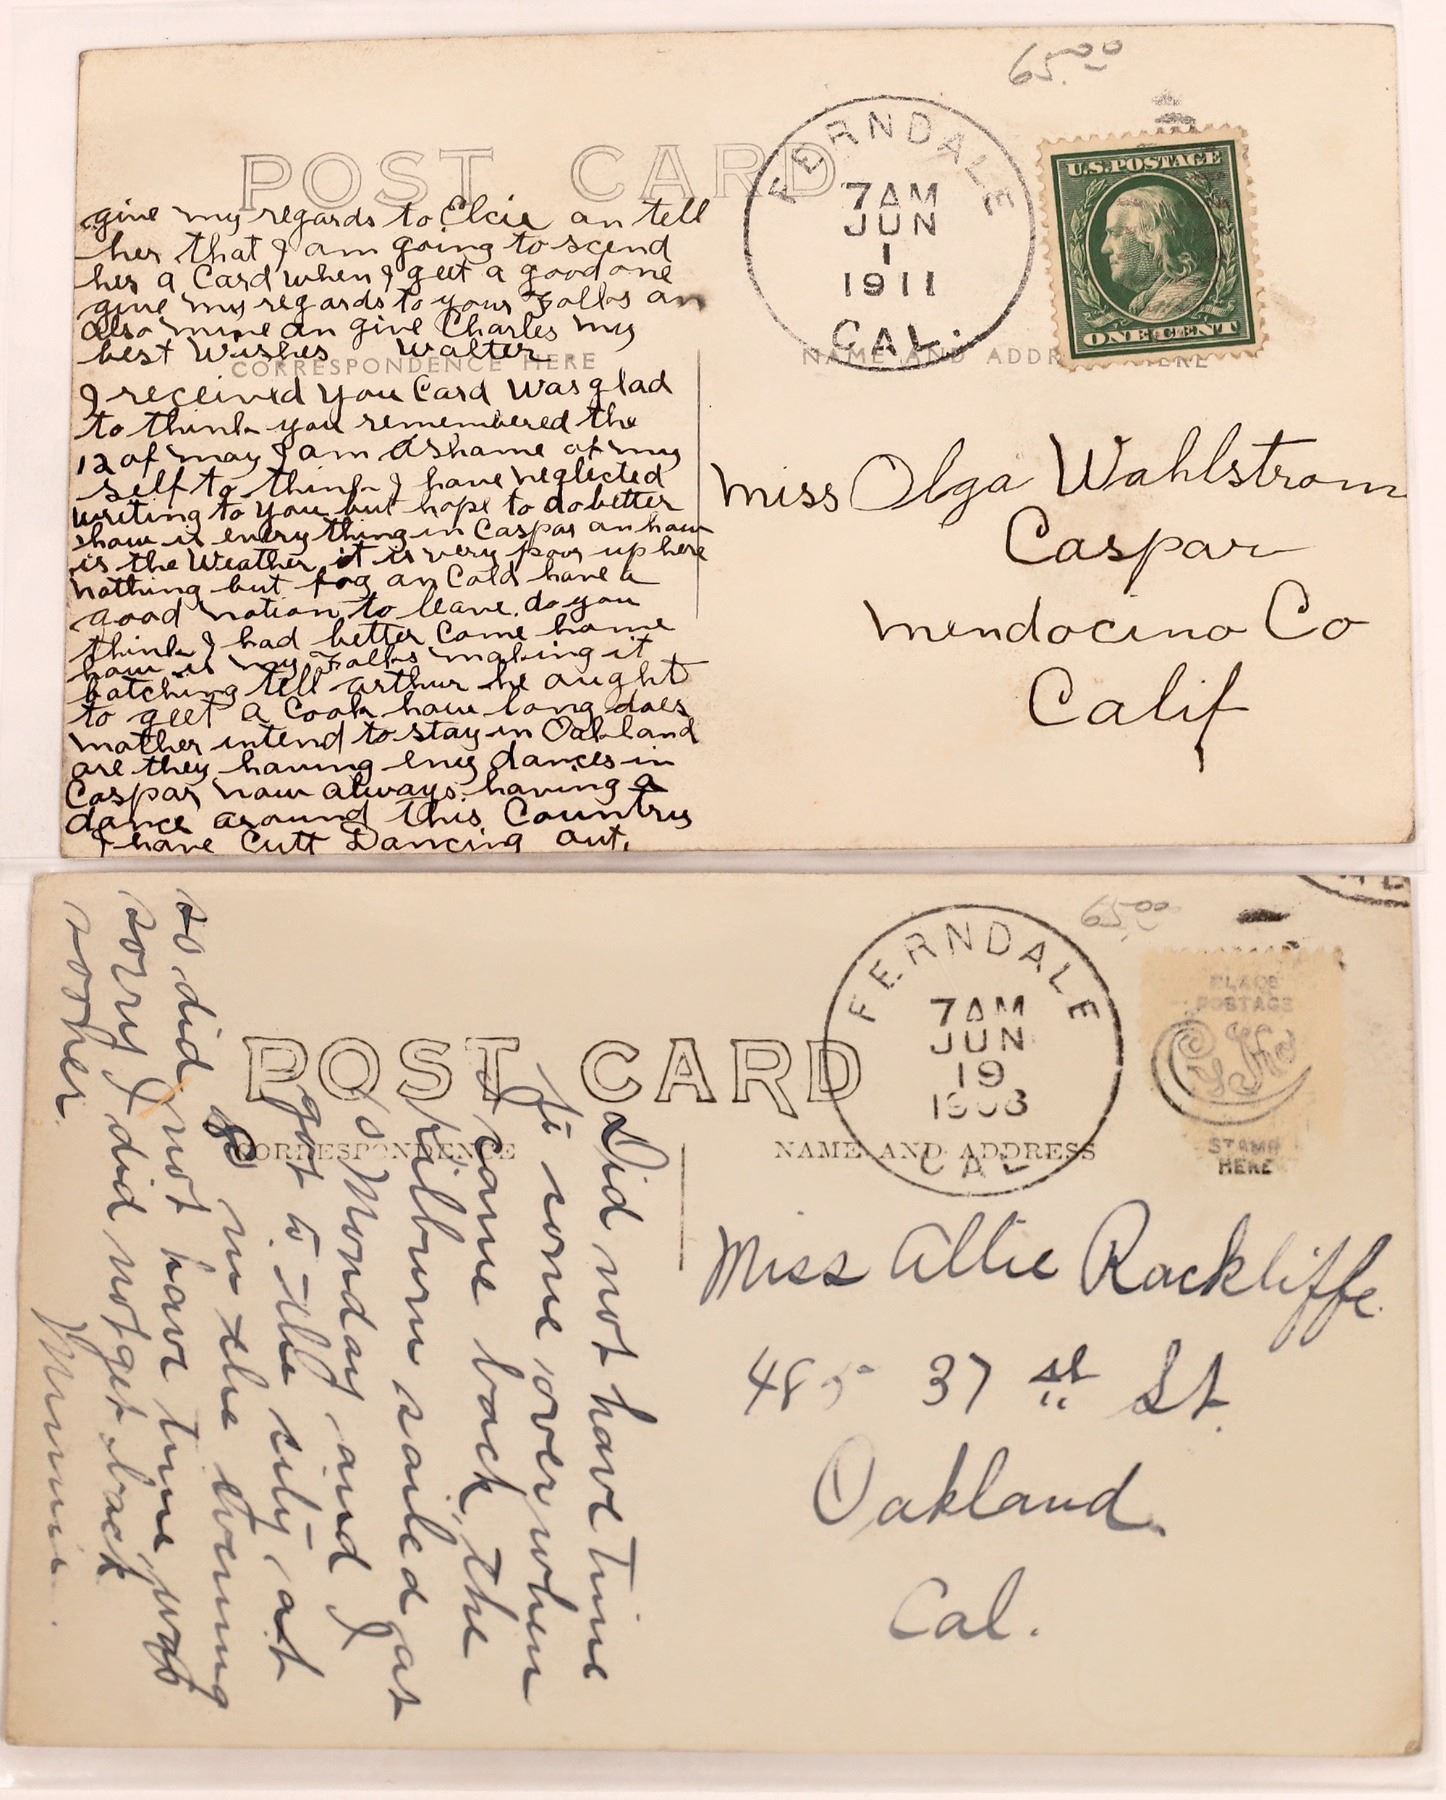 65.00
POST CARD
FERNDALE
7AM
JUN
1
1911
CAL.
U.S. POSTAGE
ONE CENT
give my regards to Elcie an tell
her that I am going to scend
her a Card when I geet a good one
give my regards to your Folks an
also mine an give Charles my
best Wishes Walter
CORRESPONDENCE HERE
NAME AND ADDR HERE
I received you Card Was glad
to think you remembered the
12 of may I am ashame of my
self to think I have neglected
writing to you but hope to do better
how is every thing in Caspar an how
is the Weather it is very poor up here
nothing but fog an Cold have a
good notion to leave. do you
think I had better Come home
how is my Folks making it
batching tell arthur he aught
to geet a Cook how long does
mother intend to stay in Oakland
are they having eny dances in
Caspar now always having a
dance around this Country
I have Cutt Dancing out.
Miss Olga Wahlstrom
Caspar
Mendocino Co
Calif
65.00
POST CARD
FERNDALE
7AM
JUN
19
1908
CAL
PLACE
POSTAGE
STAMP
HERE
CORRESPONDENCE
NAME AND ADDRESS
Did not have time
to come over when
I came back, the
Kilburn sailed at
Monday and I
got to the city at
8 in the evening
so did not have time, was
sorry I did not get back
sooner.
Minnie.
Miss Allie Rackliffe
485 37 st St.
Oakland
Cal.